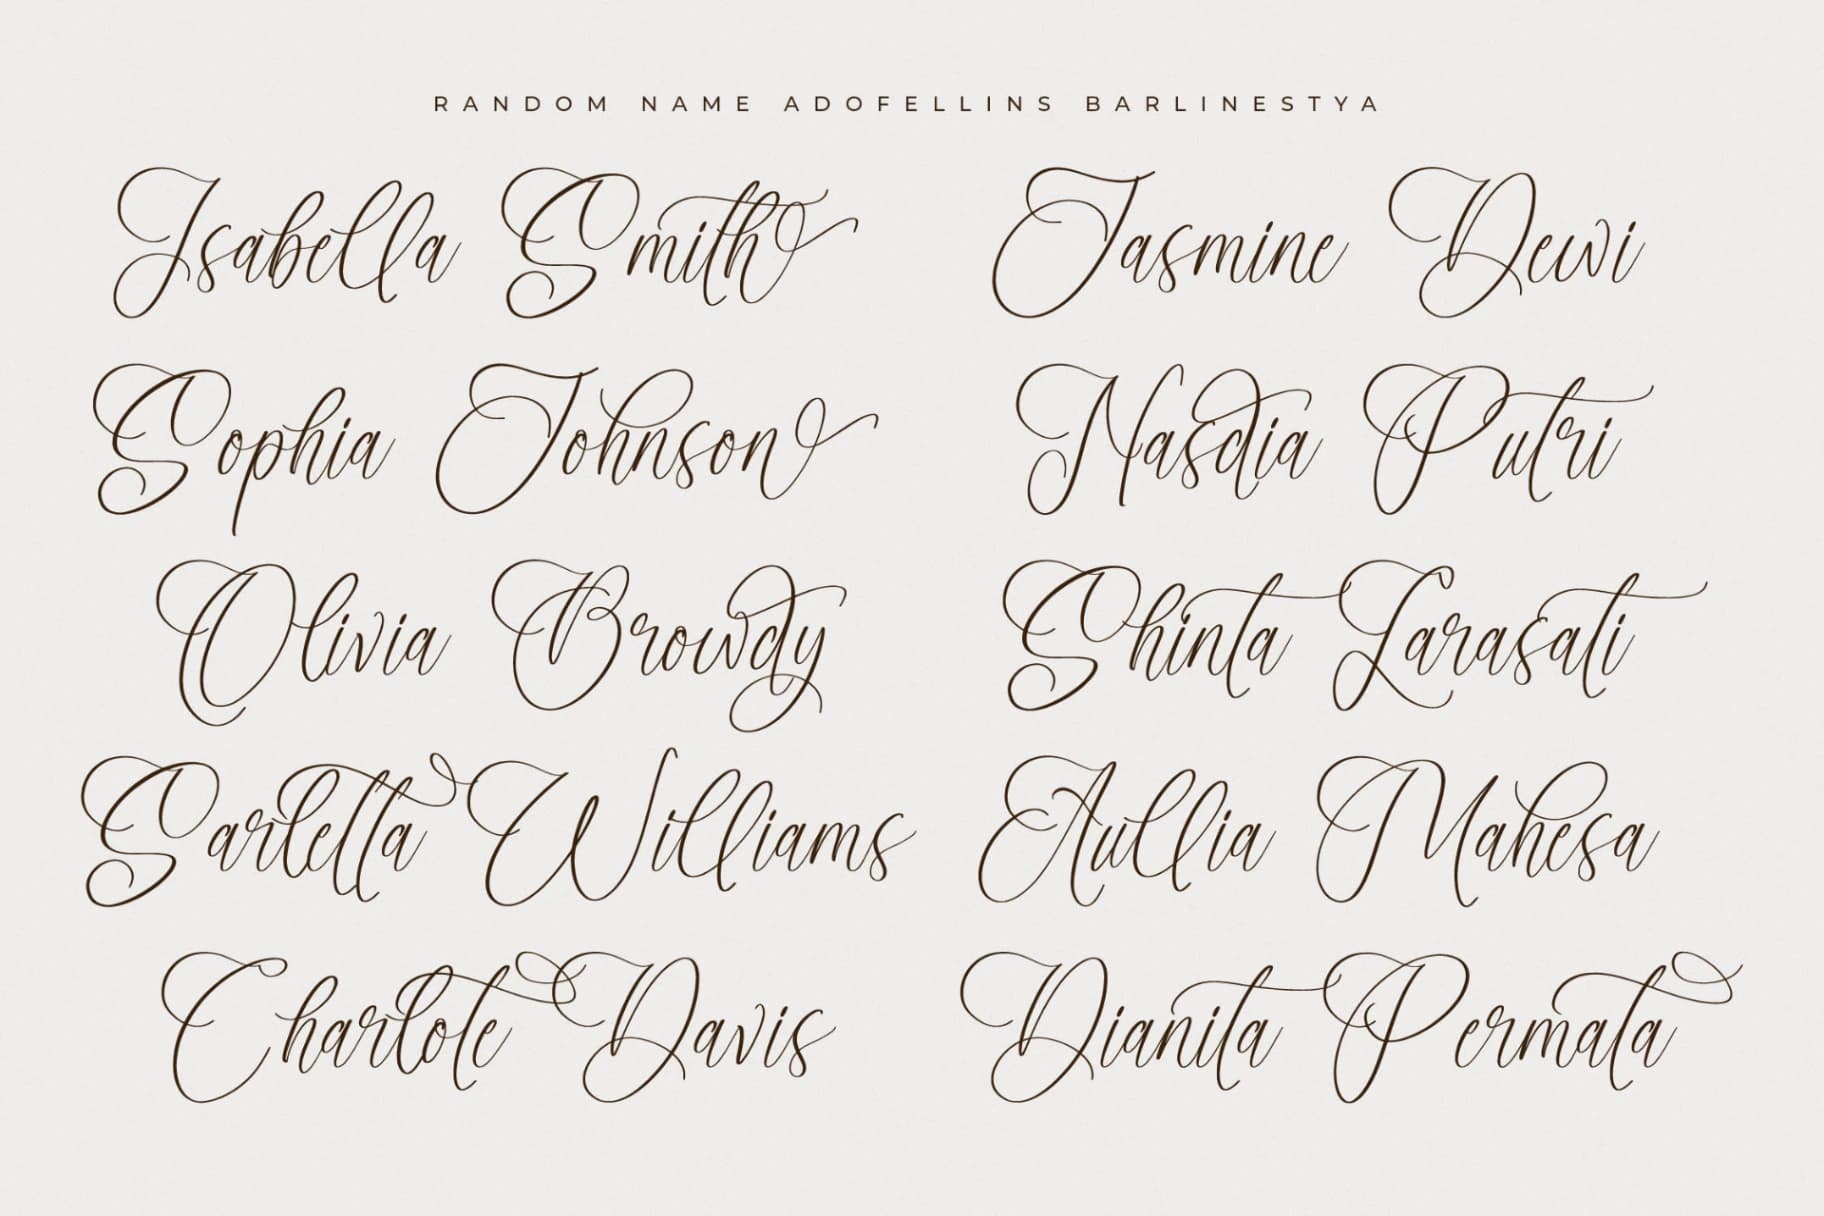 RANDOM NAME ADOFELLINS BARLINESTYA
Isabella Smith
Jasmine Dewi
Sophia Johnson
Nasdia Putri
Olivia Browdy
Shinta Larasati
Sarletta Williams
Aullia Mahesa
Charlote Davis
Dianita Permata